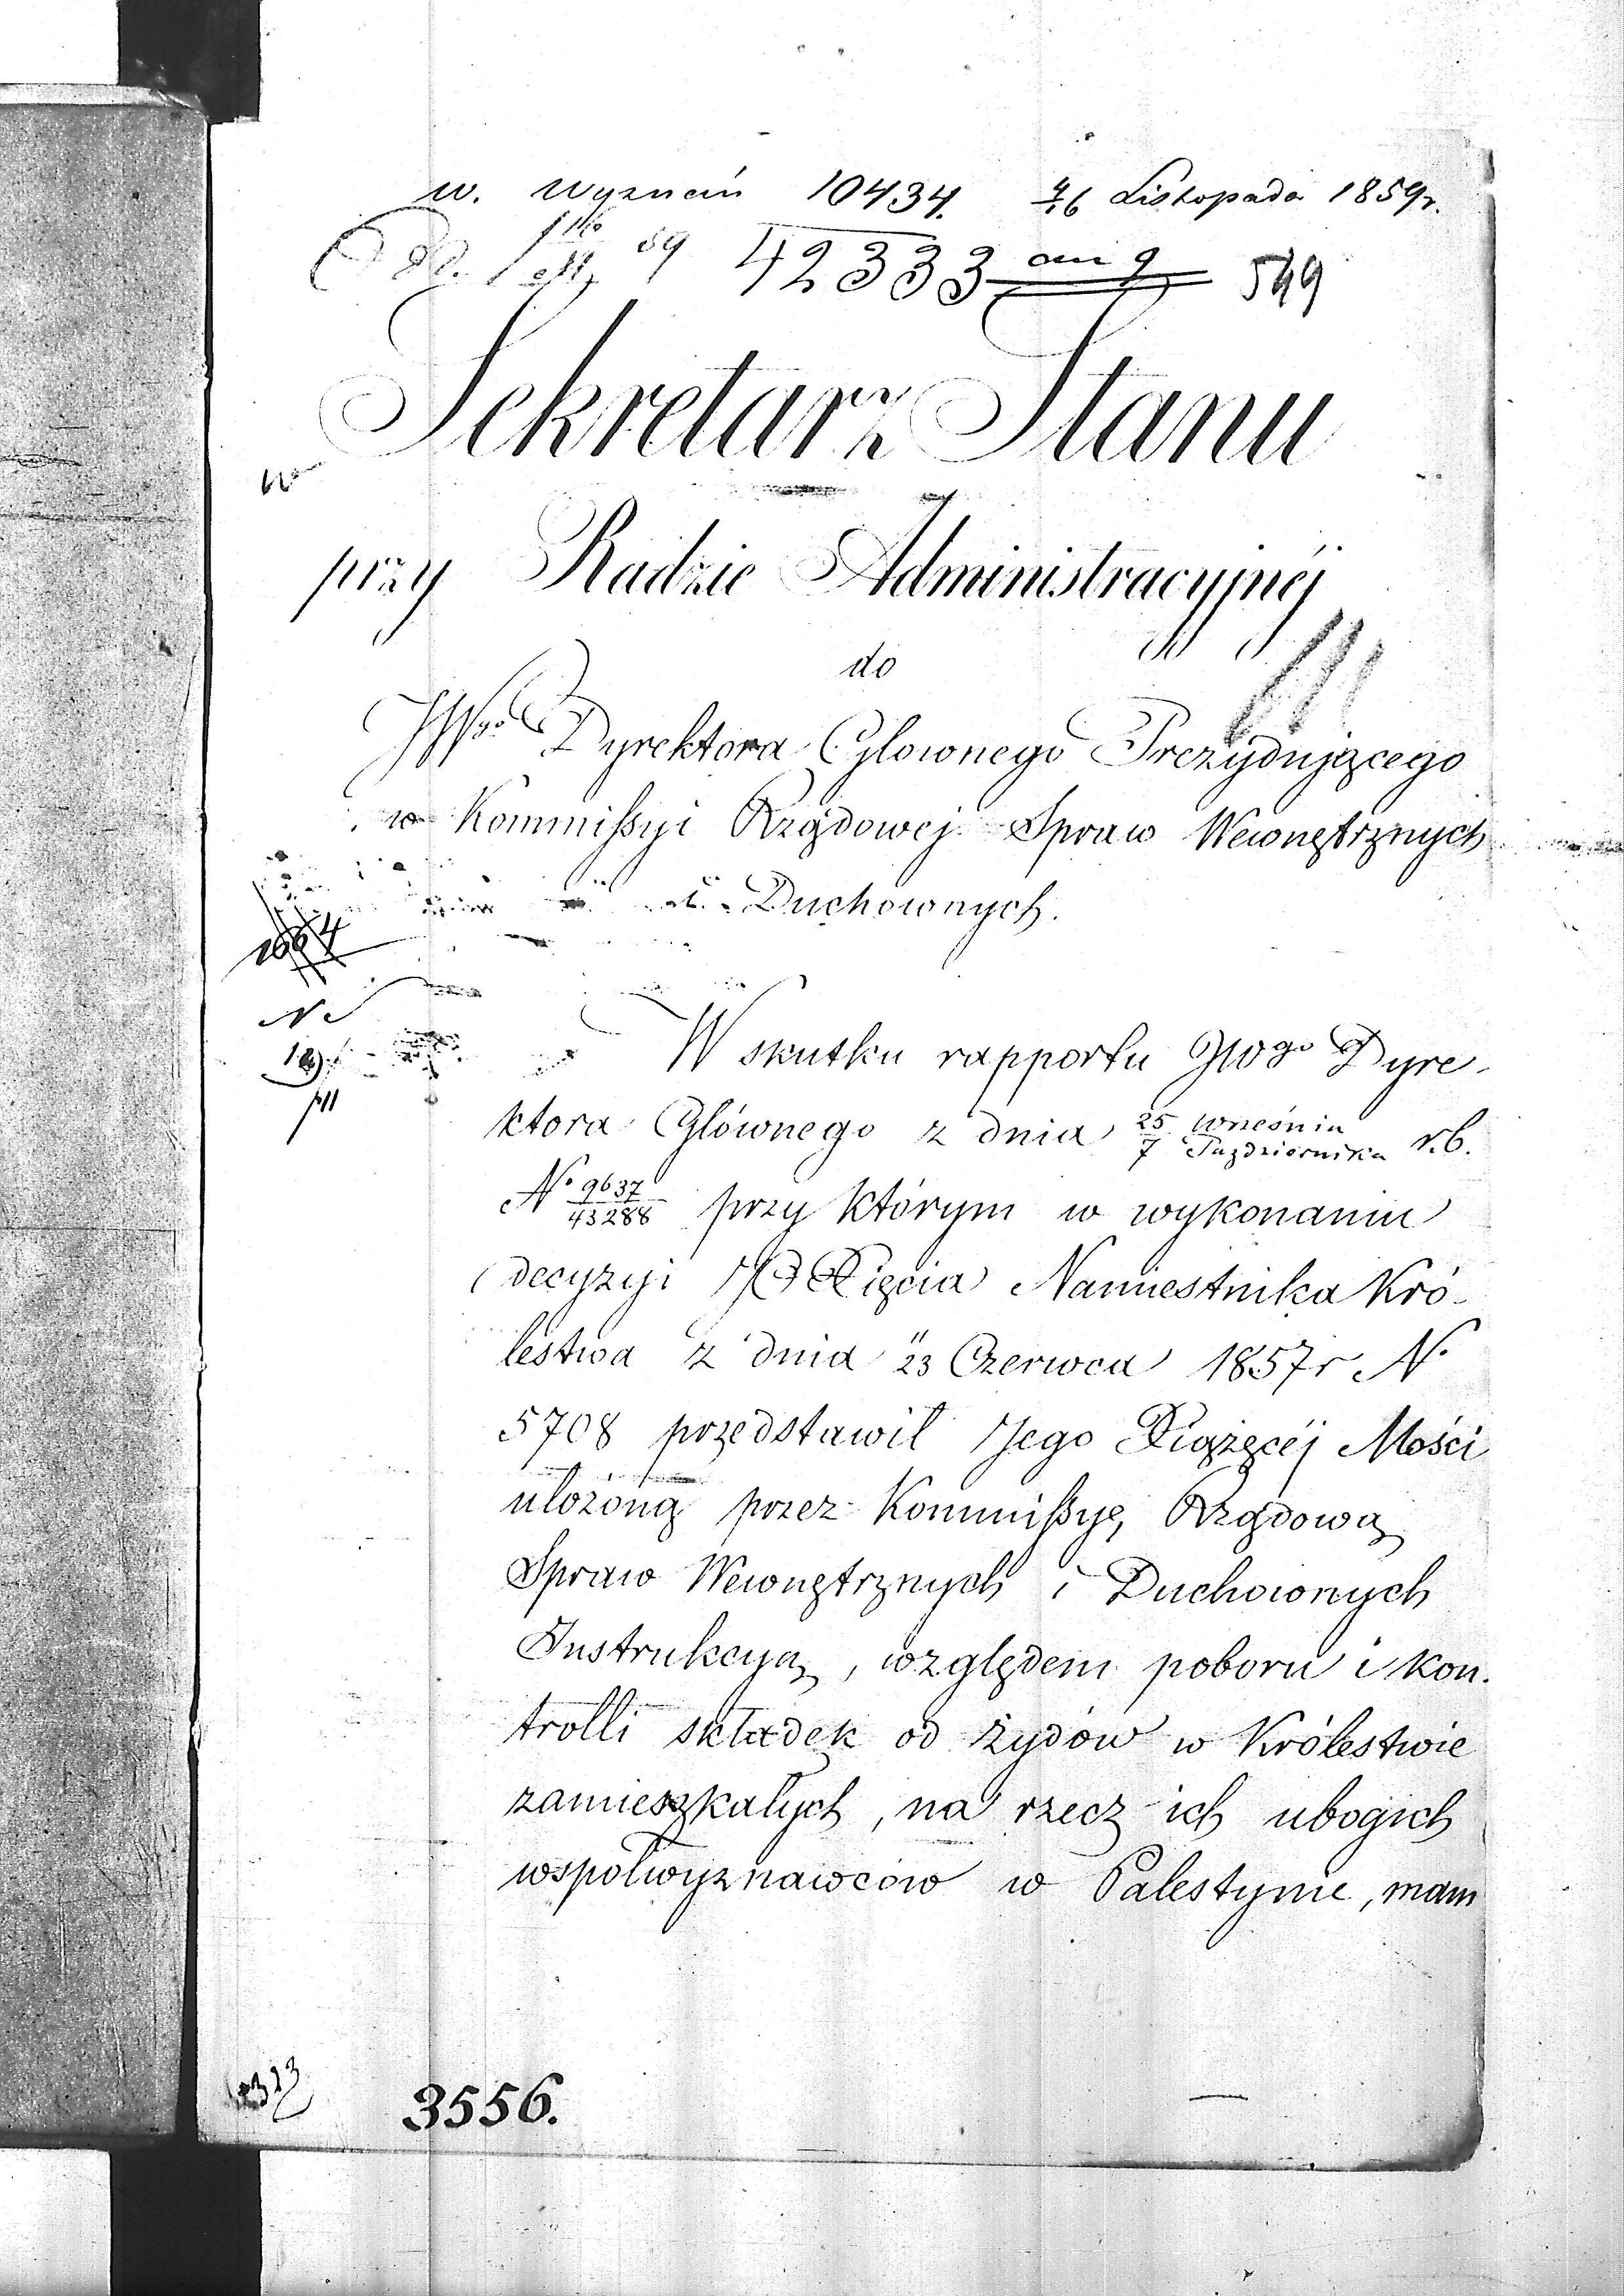 w. Wyznań 10434. 4/16 Listopada 1859r.
59 42333 549
Sekretarz Stanu
przy Radzie Administracyjnéj
do
JWgo Dyrektora Głownego Prezydującego
w Kommissyi Rządowej Spraw Wewnętrznych
i Duchownych.
1664
W skutku rapportu JWgo Dyre-
ktora Głównego z dnia 25 Wrześnin / 7 Października r.b.
No 9637/43288 przy którym w wykonaniu
decyzyi JO Xięcia Namiestnika Kró-
lestwa z dnia 11/23 Czerwca 1857r No
5708 przedstawił Jego Xiążęcéj Mości
ułożoną przez Kommissyę Rządową
Spraw Wewnętrznych i Duchownych
Instrukcyą, względem poboru i kon-
trolli składek od żydów w Królestwie
zamieszkałych, na rzecz ich ubogich
wspołwyznawców w Palestynie, mam
3556.